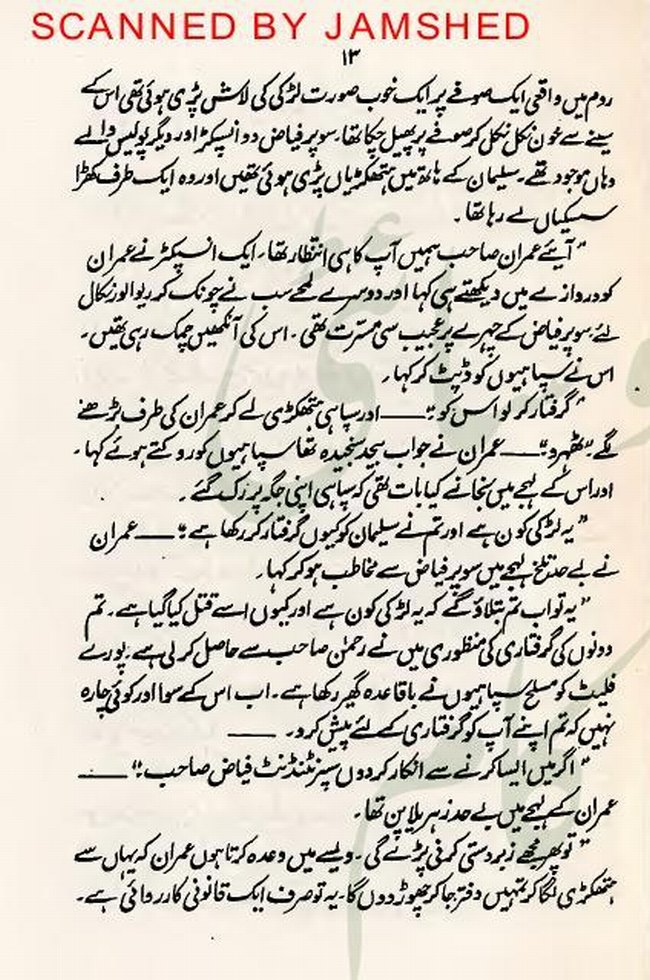 SCANNED BY JAMSHED
۱۳
روم میں واقعی ایک صوفے پر ایک خوب صورت لڑکی کی لاش پڑی ہوئی تھی اس کے
سینے سے خون نکل نکل کر صوفے پر پھیل چکا تھا۔ سوپر فیاض دو انسپکٹر اور دیگر پولیس والے
وہاں موجود تھے۔ سلیمان کے ہاتھ میں ہتھکڑیاں پڑی ہوئی تھیں اور وہ ایک طرف کھڑا
سسکیاں لے رہا تھا۔
"آیئے عمران صاحب ہمیں آپ کا ہی انتظار تھا۔ ایک انسپکٹر نے عمران
کو دروازے میں دیکھتے ہی کہا اور دوسرے لمحے سب نے چونک کر ریوالور نکال
لئے۔ سوپر فیاض کے چہرے پر عجیب سی مسرت تھی۔ اس کی آنکھیں چمک رہی تھیں۔
اس نے سپاہیوں کو ڈپٹ کر کہا۔
"گرفتار کر لو اس کو"۔ —— اور سپاہی ہتھکڑی لے کر عمران کی طرف بڑھنے
لگے۔ "ٹھہرو"۔ —— عمران نے جواب بیحد سنجیدہ تھا سپاہیوں کو روکتے ہوئے کہا۔
اور اس کے لہجے میں نجانے کیا بات تھی کہ سپاہی اپنی جگہ پر رک گئے۔
"یہ لڑکی کون ہے اور تم نے سلیمان کو کیوں گرفتار کر رکھا ہے"۔ —— عمران
نے بے حد تلخ لہجے میں سوپر فیاض سے مخاطب ہو کر کہا۔
"یہ تو اب تم بتلاؤ گے کہ یہ لڑکی کون ہے اور کیوں اسے قتل کیا گیا ہے۔ تم
دونوں کی گرفتاری کی منظوری میں نے رحمٰن صاحب سے حاصل کر لی ہے۔ پورے
فلیٹ کو مسلح سپاہیوں نے باقاعدہ گھیر رکھا ہے۔ اب اس کے سوا اور کوئی چارہ
نہیں کہ تم اپنے آپ کو گرفتاری کے لئے پیش کر دو۔ ——
"اگر میں ایسا کرنے سے انکار کر دوں سپرنٹنڈنٹ فیاض صاحب"۔ ——
عمران کے لہجے میں بے حد زہریلا پن تھا۔
"تو پھر مجھے زبردستی کرنی پڑے گی۔ ویسے میں وعدہ کرتا ہوں عمران کہ یہاں سے
ہتھکڑی لگا کر تمہیں دفتر جا کر چھوڑ دوں گا۔ یہ تو صرف ایک قانونی کارروائی ہے۔